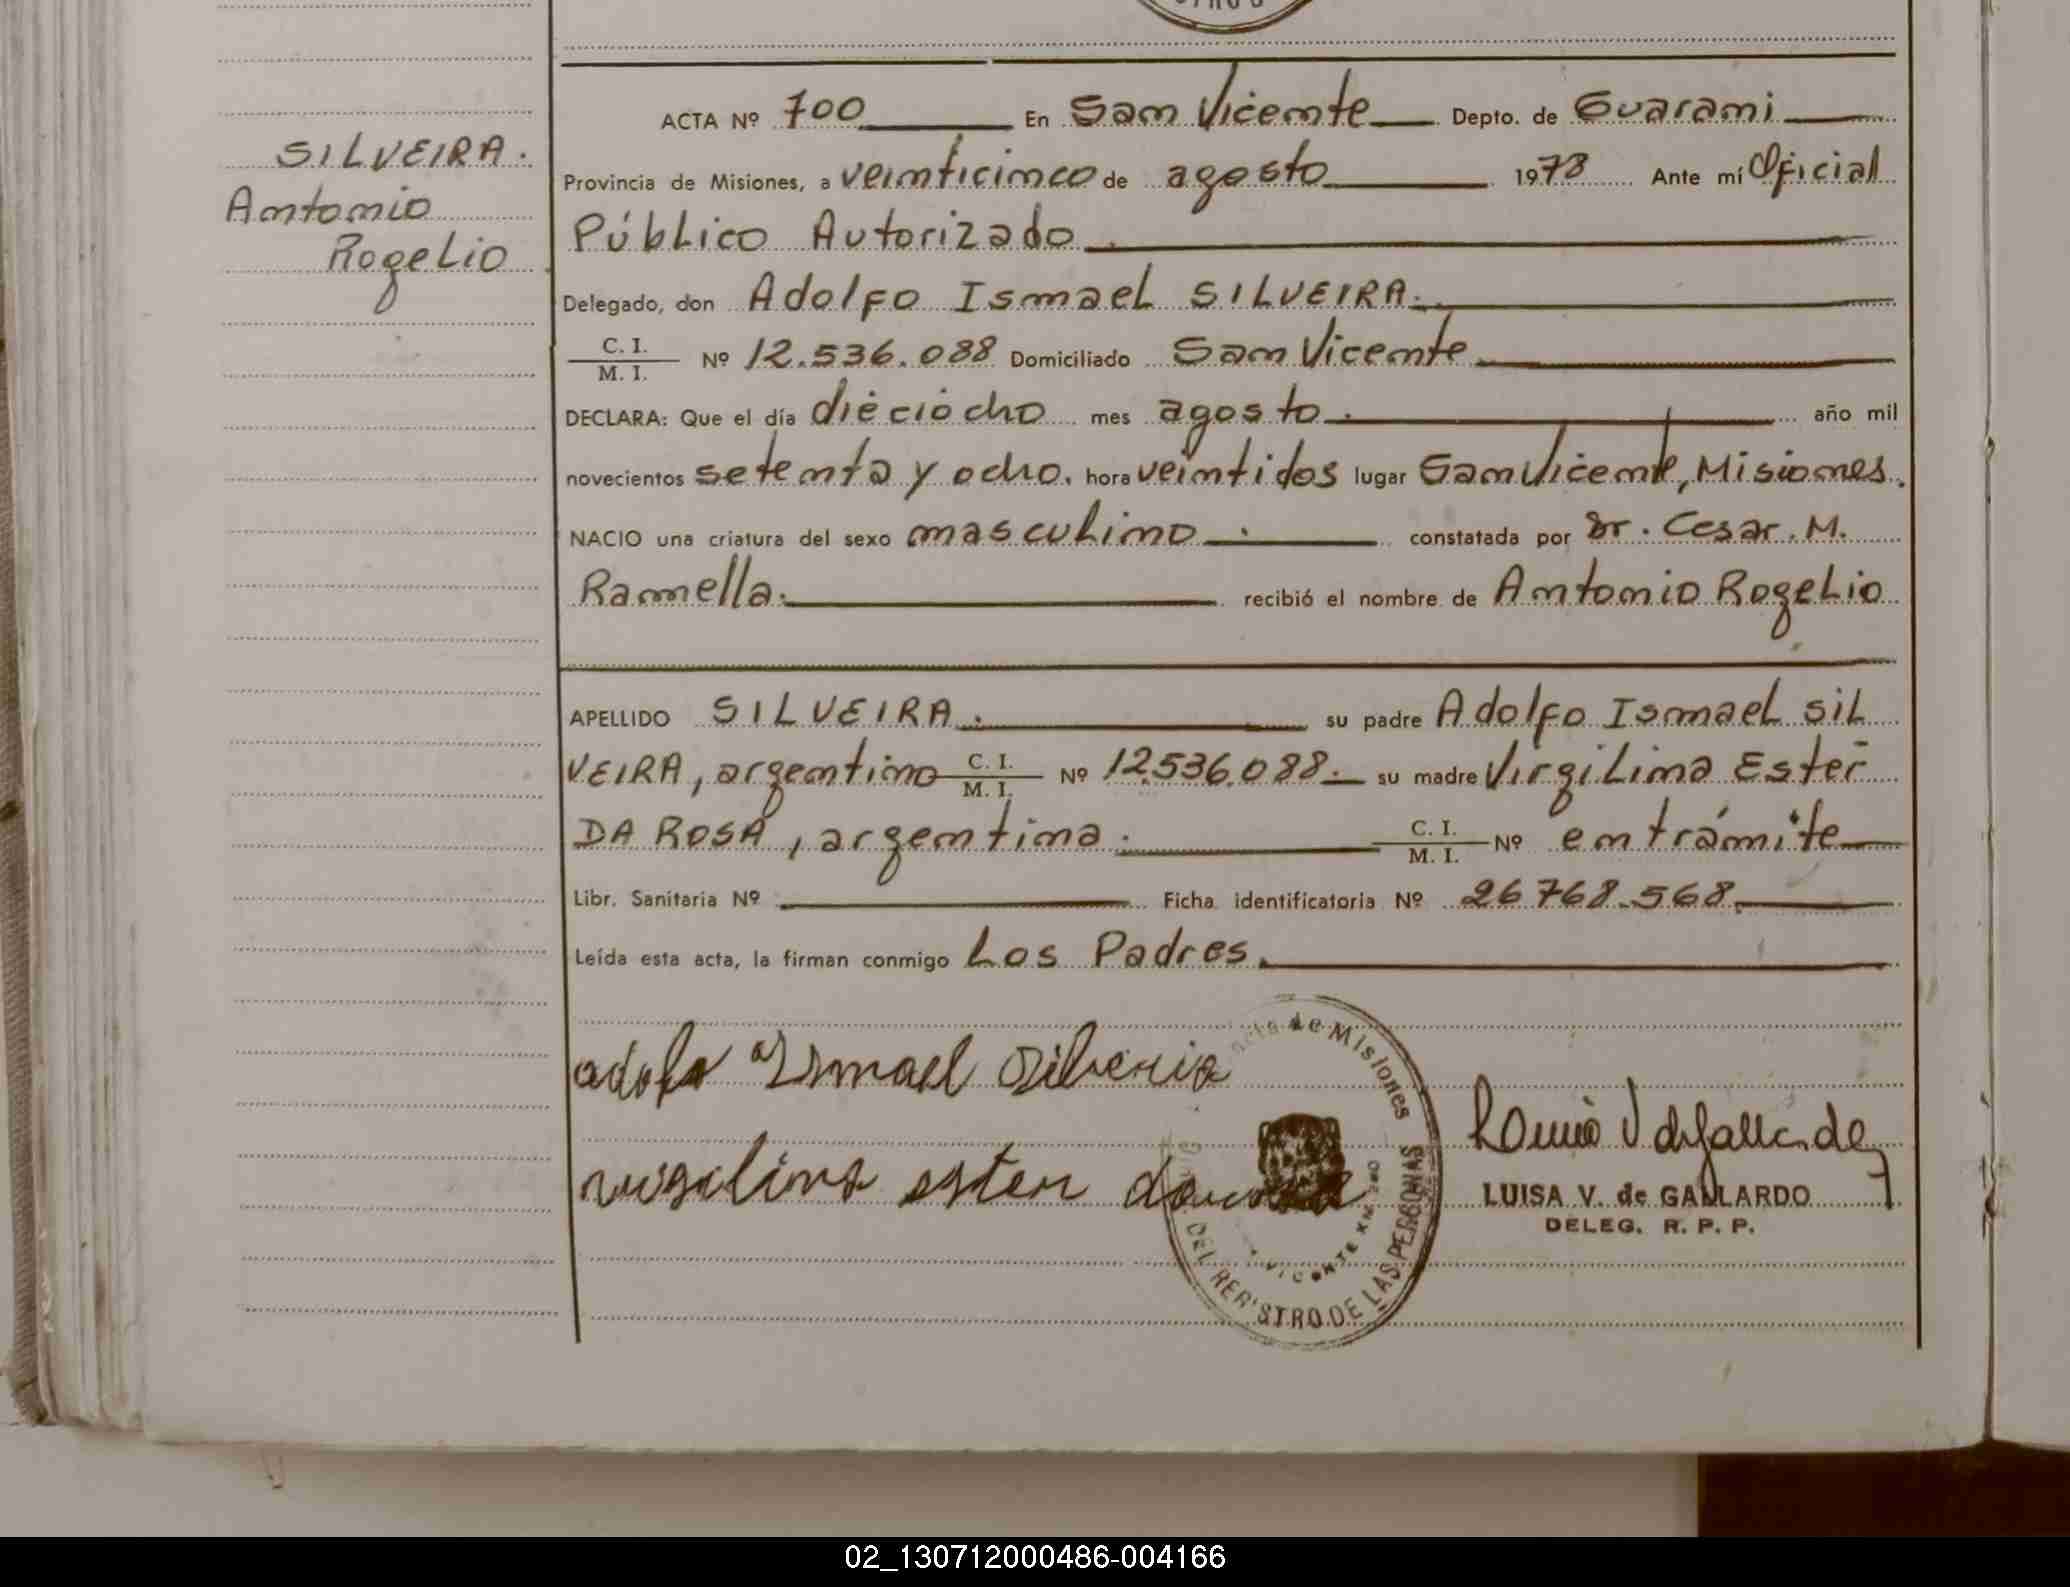 STRO
ACTA Nº 700 En San Vicente Depto. de Guarani
SILVEIRA.
Antonio
Rogelio
Provincia de Misiones, a veinticinco de agosto 1978 Ante mí Oficial
Público Autorizado
Delegado, don Adolfo Ismael SILVEIRA.
C. I.
M. I. Nº 12.536.088 Domiciliado San Vicente
DECLARA: Que el día dieciocho mes agosto. año mil
novecientos setenta y ocho. hora veintidos lugar San Vicente, Misiones.
NACIO una criatura del sexo masculino. constatada por Dr. Cesar. M.
Ramella. recibió el nombre de Antonio Rogelio
APELLIDO SILVEIRA. su padre Adolfo Ismael SIL
VEIRA, argentino C. I. M. I. Nº 12.536.088. su madre Virgilina Ester
DA ROSA, argentina. C. I. M. I. Nº en trámite
Libr. Sanitaria Nº Ficha identificatoria Nº 26 768.568.
Leída esta acta, la firman conmigo Los Padres.
adolfo Ismael Silveria
virgilina ester
de Misiones
DEL REGISTRO DE LAS PERSONAS
LUISA V. de GALLARDO
DELEG. R. P. P.
02_130712000486-004166